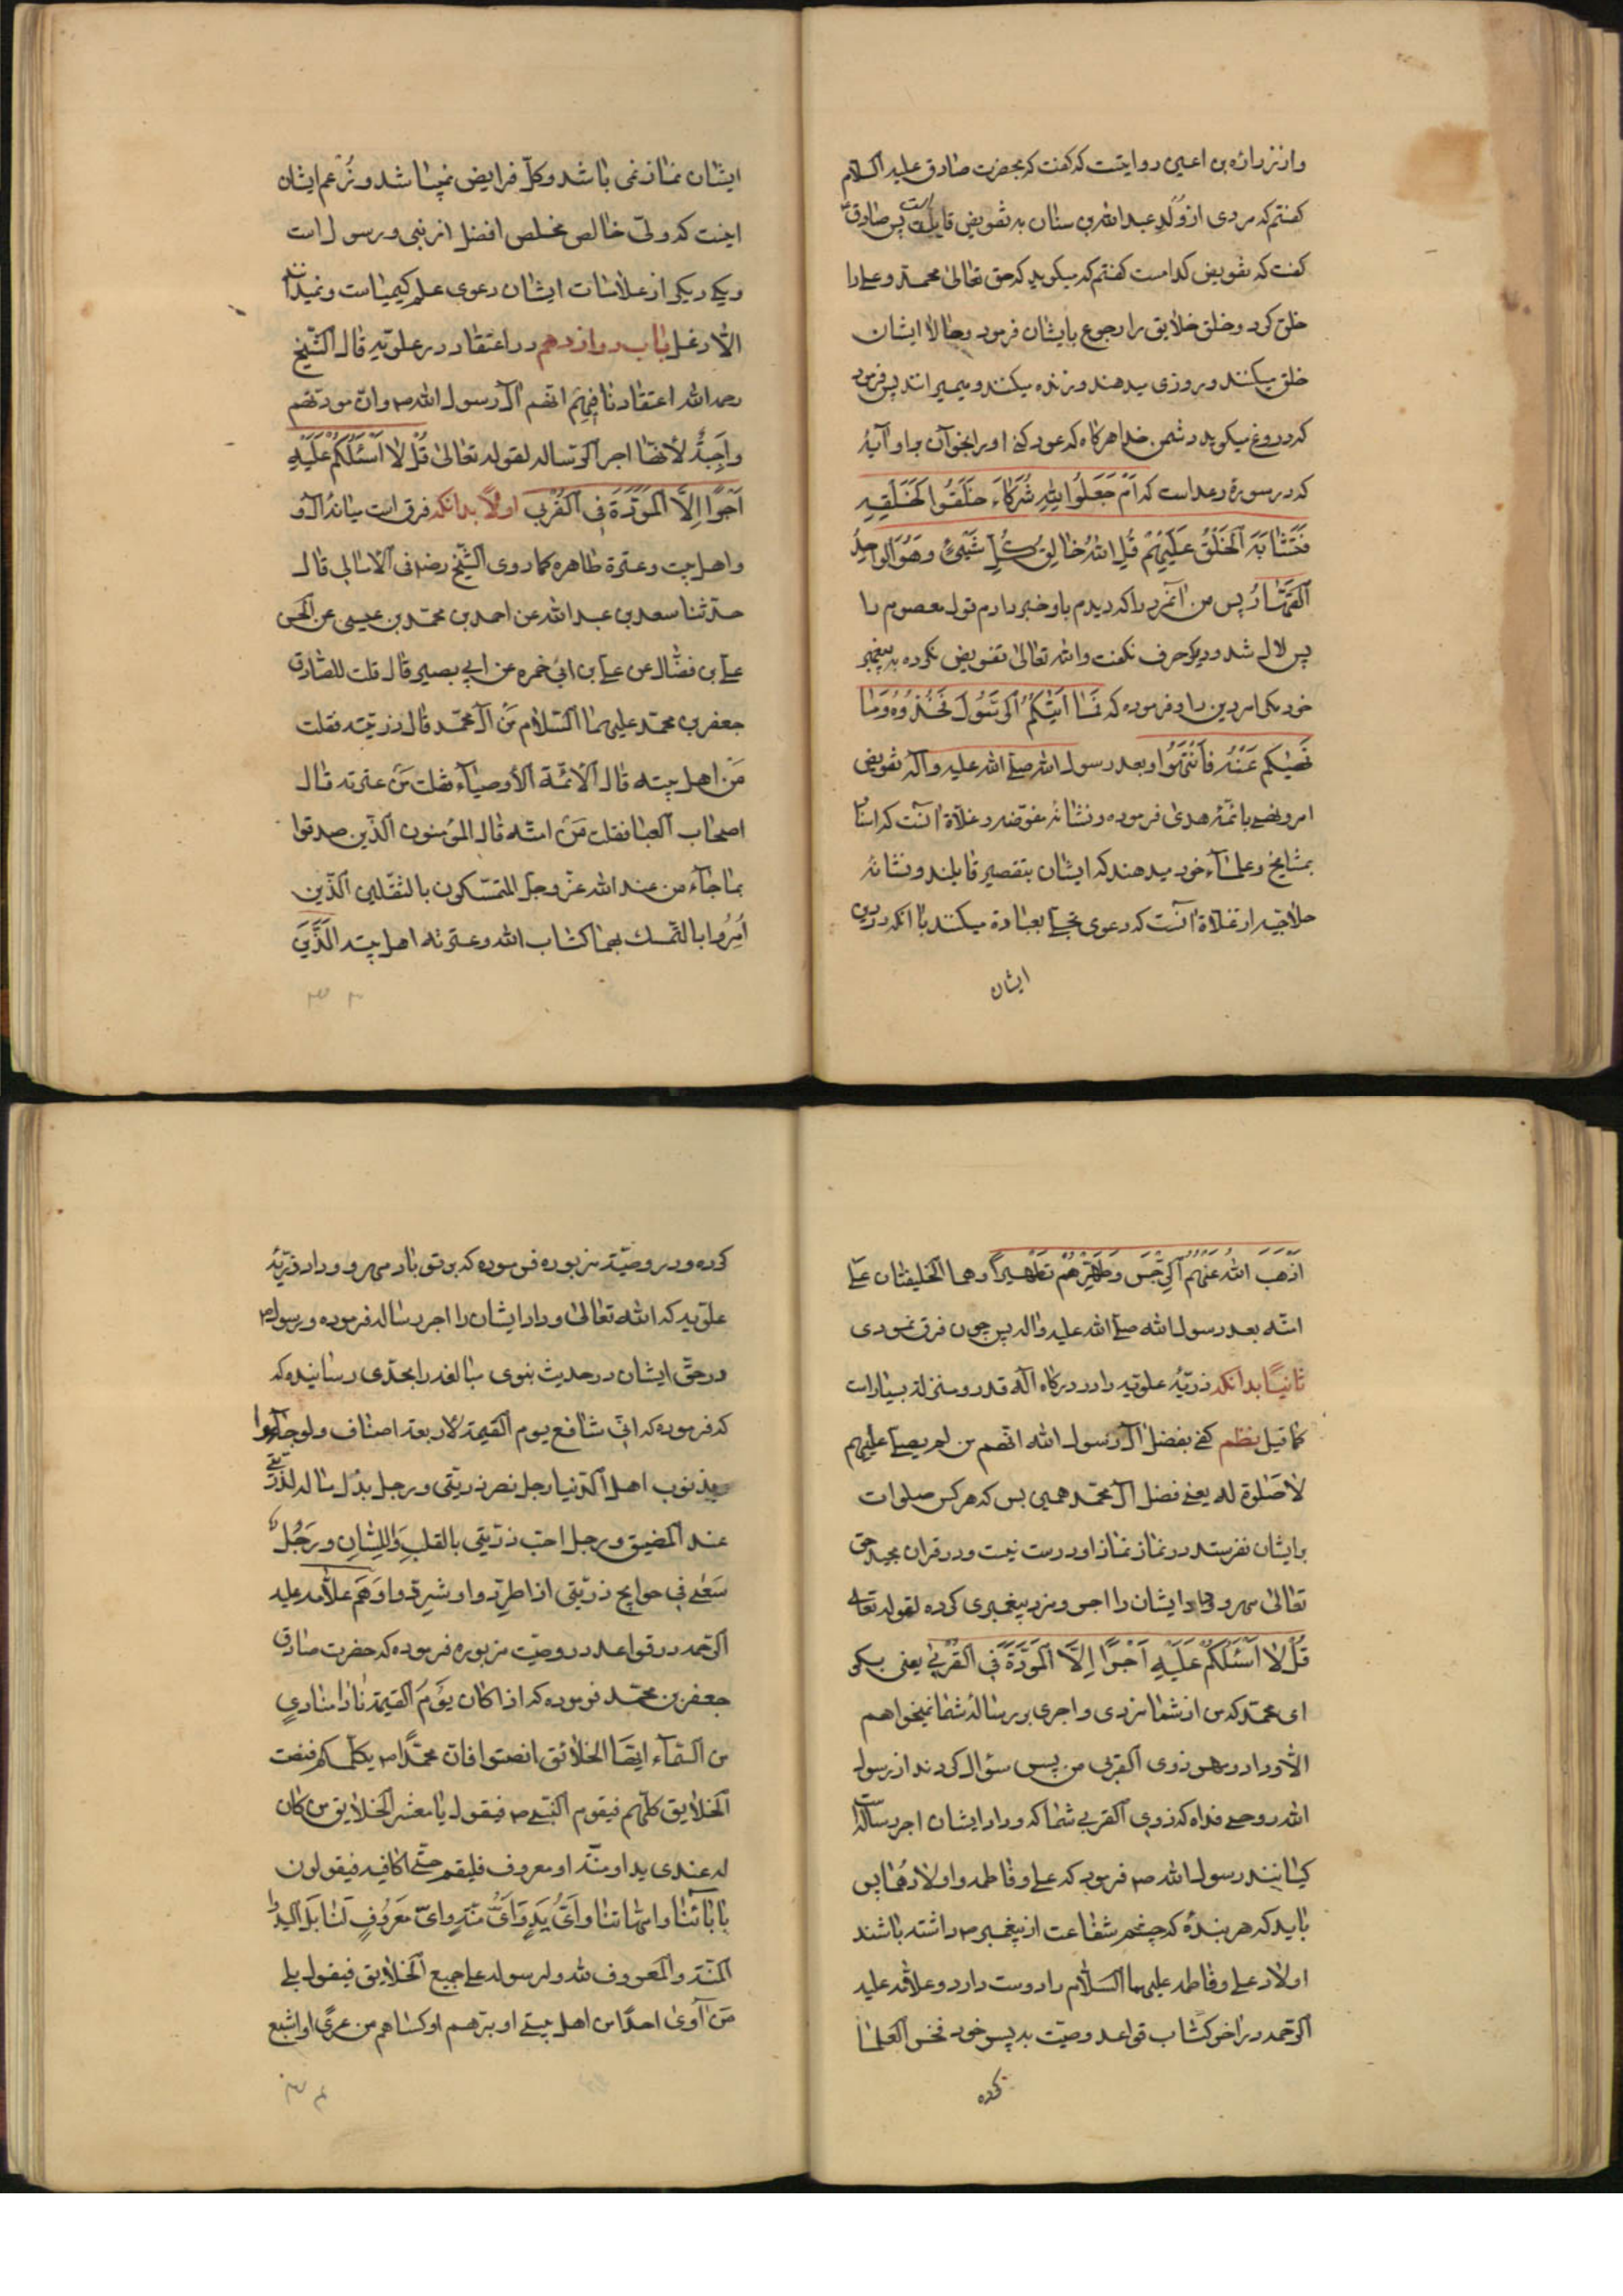 واز زراره بن اعین روایتست که گفت که بحضرت صادق علیه السلام
گفتم که مردی از ولد عبدالله بن سنان به تفویض قایل است پس صادق
گفت که تفویض کدامست گفتم که میکوید که حق تعالی محمد و علی را
خلق کرد و خلق خلایق را رجوع بایشان فرمود و حالا ایشان
خلق میکنند و روزی میدهند و زنده میکنند و میمیرانند پس فرمود
که دروغ میکوید دشمن خدا هرکاه که عود کنی او را بخوان بر او آیهٔ
که در سورهٔ رعد است که اَمْ جَعَلُوا لِلّهِ شُرَکاءَ خَلَقُوا کَخَلْقِهِ
فَتَشابَهَ الْخَلْقُ عَلَیْهِمْ قُلِ اللهُ خالِقُ کُلِّ شَیْیٍٔ وَهُوَ الْواحِدُ
الْقَهّارُ پس من آنمرد را که دیدم باو خبر دادم قول معصوم را
پس لال شد و دیکر حرف نکفت والله تعالی تفویض نکرده به پیغمبر
خود مکر امر دین را و فرموده که مَا آتیٰکُمُ الرَّسُولُ فَخُذُوهُ وَمَا
نَهیٰکُم عَنْهُ فَانْتَهُوا و بعد رسول الله صلی الله علیه وآله تفویض
امر و نهی بائمهٔ هدی فرموده و نشانهٔ مفوضه و غلاة آنست که اسناد
بمشایخ و علماء خود میدهند که ایشان بتقصیر قایلند و نشانهٔ
حلاجیه از غلاة آنست که دعوی تجلی بعبادة میکنند با آنکه در دین
ایشان
ایشان نماز نمی باشد و کل فرایض نمیباشد و زعم ایشان
اینست که ولی خالص مخلص افضل از نبی و رسول است
و یکی دیکر از علامات ایشان دعوی علم کیمیاست و نمیدانند
الا دغل باب دوازدهم در اعتقاد در علویه قال الشیخ
رحمه الله اعتقادنا فیهم انهم آل رسول الله ص وان مودتهم
واجِبةٌ لانّها اجر الرسالة لقوله تعالی قُلْ لا اَسْئَلُکُمْ عَلَیْهِ
اَجْرًا اِلّا الْمَوَدَّةَ فِی الْقُرْبی اولاً بدانکه فرق است میانهٔ آل و
واهل بیت وعترة طاهره کما روی الشیخ رض فی الامالی قال
حدثنا سعد بن عبدالله عن احمد بن محمد بن عیسی عن الحسن
علی بن فضال عن علی بن ابی حمزه عن ابی بصیر قال قلت للصادق
جعفر بن محمد علیهما السلام مَن آل محمد قال ذریته فقلت
مَن اهل بیته قال الائمة الاوصیاء فقلت مَن عترته قال
اصحاب العبا فقلت مَن امته قال المؤمنون الذین صدقوا
بما جاء من عند الله عز وجل المتمسکون بالثقلین الذین
اُمِرُوا بالتمسک بهما کتاب الله وعترته اهل بیته الَّذینَ
اَذْهَبَ اللهُ عَنْهُمُ الرِّجْسَ وَطَهَّرَهُمْ تَطْهیراً وهما الخلیفتان علی
امته بعد رسول الله صلی الله علیه واله پس چون فرق نمودی
ثانیًا بدانکه ذریهٔ علویه را در درکاه اله قدر و منزلة بسیار است
کما قیل نظم کفی بفضل آل رسول الله انهم من لم یصلی علیهم
لا صَلوة له یعنی فضل آل محمد همین بس که هرکس صلوات
بر ایشان نفرستد در نماز نماز او درست نیست و در قران مجید حق
تعالی مهر و وداد ایشان را اجر و مزد پیغمبری کرده لقوله تعالی
قُلْ لا اَسْئَلُکُمْ عَلَیْهِ اَجْرًا اِلَّا الْمَوَدَّةَ فِی الْقُرْبی یعنی بکو
ای محمد که من از شما مزدی و اجری بر رسالهٔ شما نمیخواهم
الا وداد و مهر ذوی القربی من پس سؤال کردند از رسول
الله روحی فداه که ذوی القربی شما که وداد ایشان اجر رسالتست
کیانند رسول الله ص فرمود که علی و فاطمه و اولادهما پس
باید که هر بندهٔ که چشم شفاعت از پیغمبر ص داشته باشند
اولاد علی و فاطمه علیهما السلام را دوست دارد و علامه علیه
الرحمه در اخر کتاب قواعد وصیت به پسر خود فخر العلما
کرده
کرده و در وصیة مزبوره فرموده که بر تو باد مهر و وداد ذریهٔ
علویه که الله تعالی وداد ایشان را اجر رساله فرموده و رسول ص
در حق ایشان در حدیث نبوی مبالغه را بحدی رسانیده که
که فرموده که انی شافع یوم القیمة لاربعة اصناف ولو جاؤا
بذنوب اهل الدنیا رجل نصر ذریتی ورجل بذل ماله لذریتی
عند المضیق ورجل احب ذریتی بالقلبِ وَاللِسانِ ورَجُلٌ
سَعیٰ فی حوایج ذریتی اذا طردوا او شردوا وهم علامه علیه
الرحمه در قواعد در وصیت مزبوره فرموده که حضرت صادق
جعفر بن محمد فرموده که اذا کان یَوْمَ القیمة نادا منادیٍ
من السماء ایها الخلائق انصتوا فان محمدًا ص یکلمکم فنصت
الخلایق کلهم فیقوم النبی ص فیقول یا معشر الخلایق من کان
له عندی ید او منة او معروف فلیقم حتی اکافیه فیقولون
بابائنا وامهاتنا وَاَیُّ یَدٍ وَاَیُّ مَنةٍ وایّ مَعرُوفٍ لَنا بَل الید و
المنة والمعروف لله ولرسوله علی جمیع الخلایق فیقول بلی
مَن آوی احدًا من اهل بیتی او برهم او کساهم من عری او اشبع